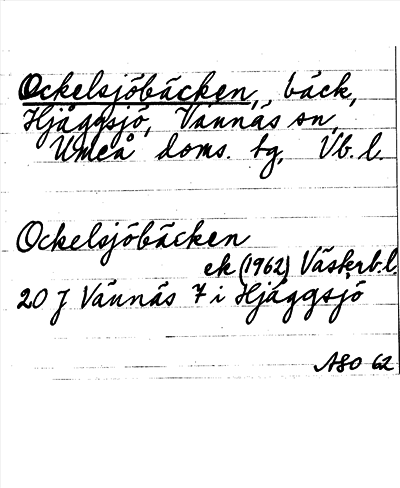 Ockelsjöbäcken, bäck,
Hjåggsjö, Vännäs sn,
Umeå doms. tg, Vb. l.
Ockelsjöbäcken
ek (1962) Västerb. l.
20 J Vännäs 7 i Hjåggsjö
ASO 62